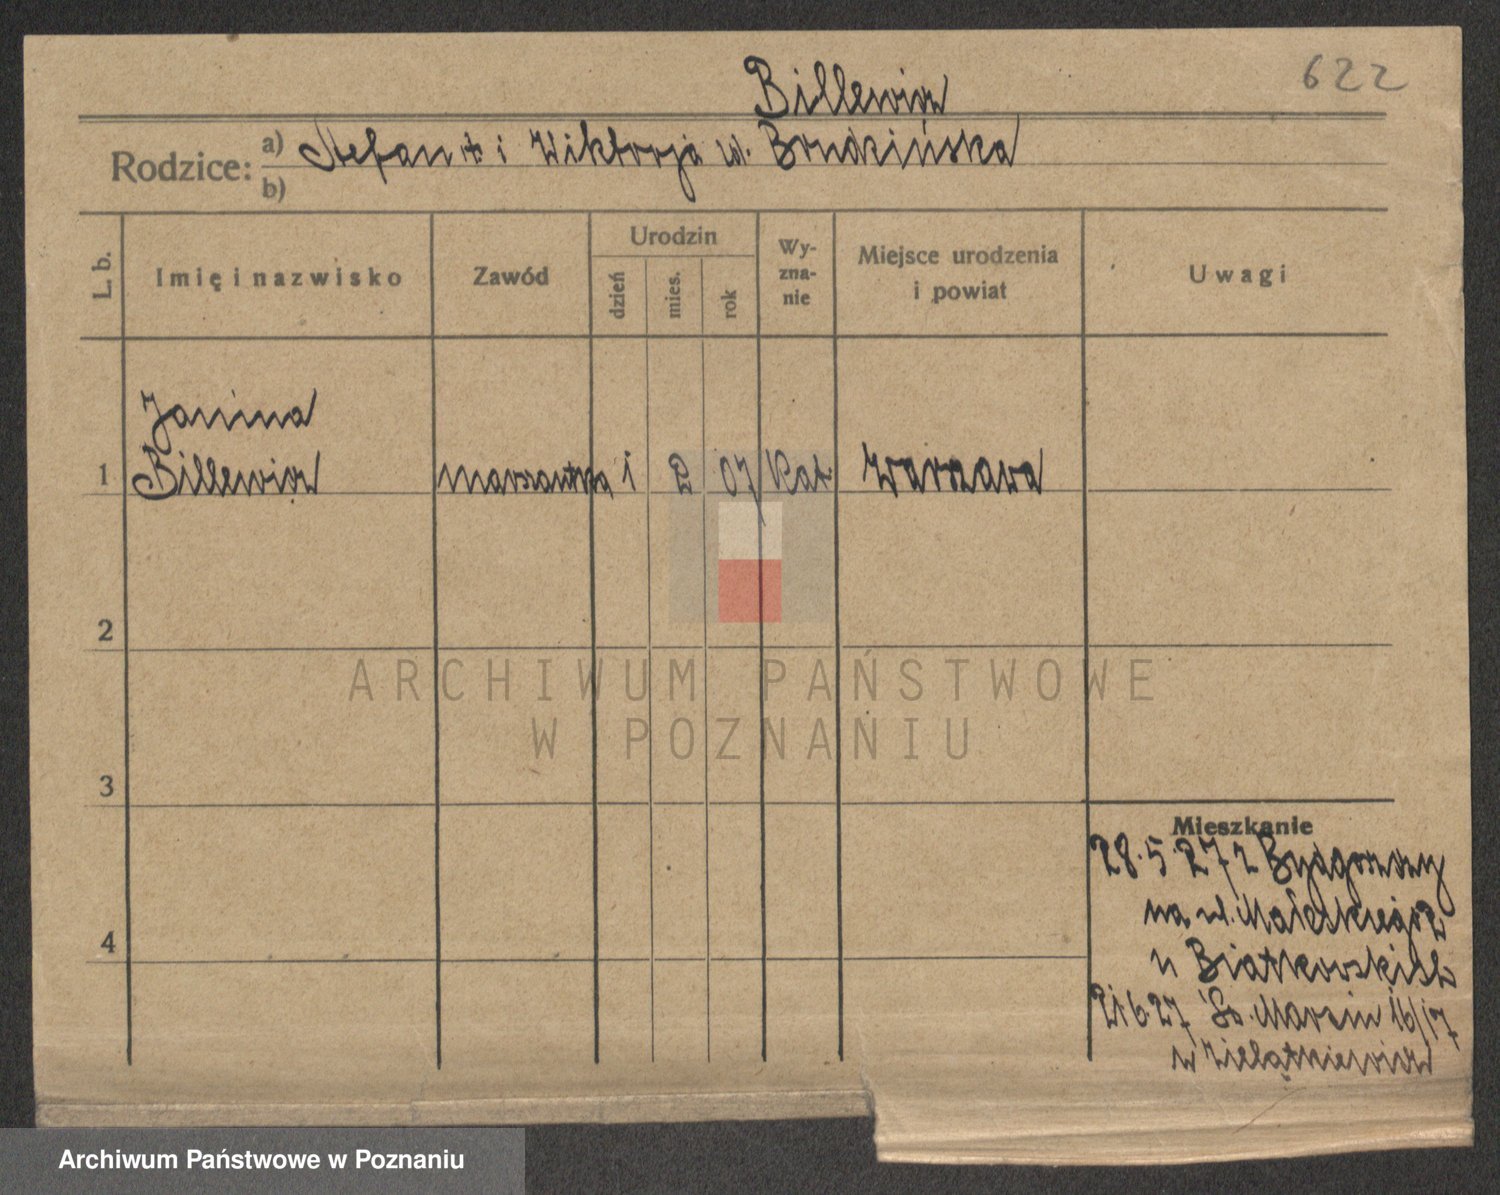 622
Billewicz
Rodzice:
a) Stefan i Wiktorja ul. Brudzińska
b)
L. b.
Imię i nazwisko
Zawód
Urodzin
dzień
mies.
rok
Wy-
zna-
nie
Miejsce urodzenia
i powiat
Uwagi
Janina
1 Billewicz 1 2 07 Kat Warszawa
2
3
4
Mieszkanie
28.5.27 z Bydgoszczy
na ul.
u Białkowskich
21.6.27 Św. Marcin 16/17
ARCHIWUM PAŃSTWOWE
W POZNANIU
Archiwum Państwowe w Poznaniu